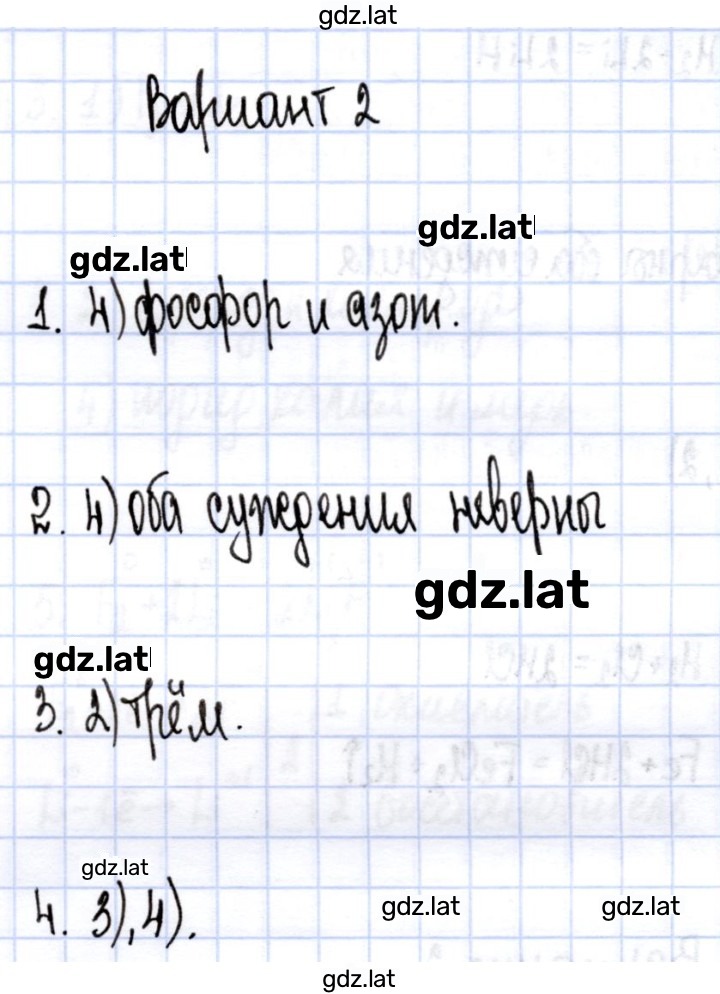 gdz.lat
Вариант 2
gdz.lat
gdz.lat
1. 4) фосфор и азот.
2. 4) оба суждения неверны
gdz.lat
gdz.lat
3. 2) трём.
gdz.lat
4. 3), 4).
gdz.lat
gdz.lat
gdz.lat